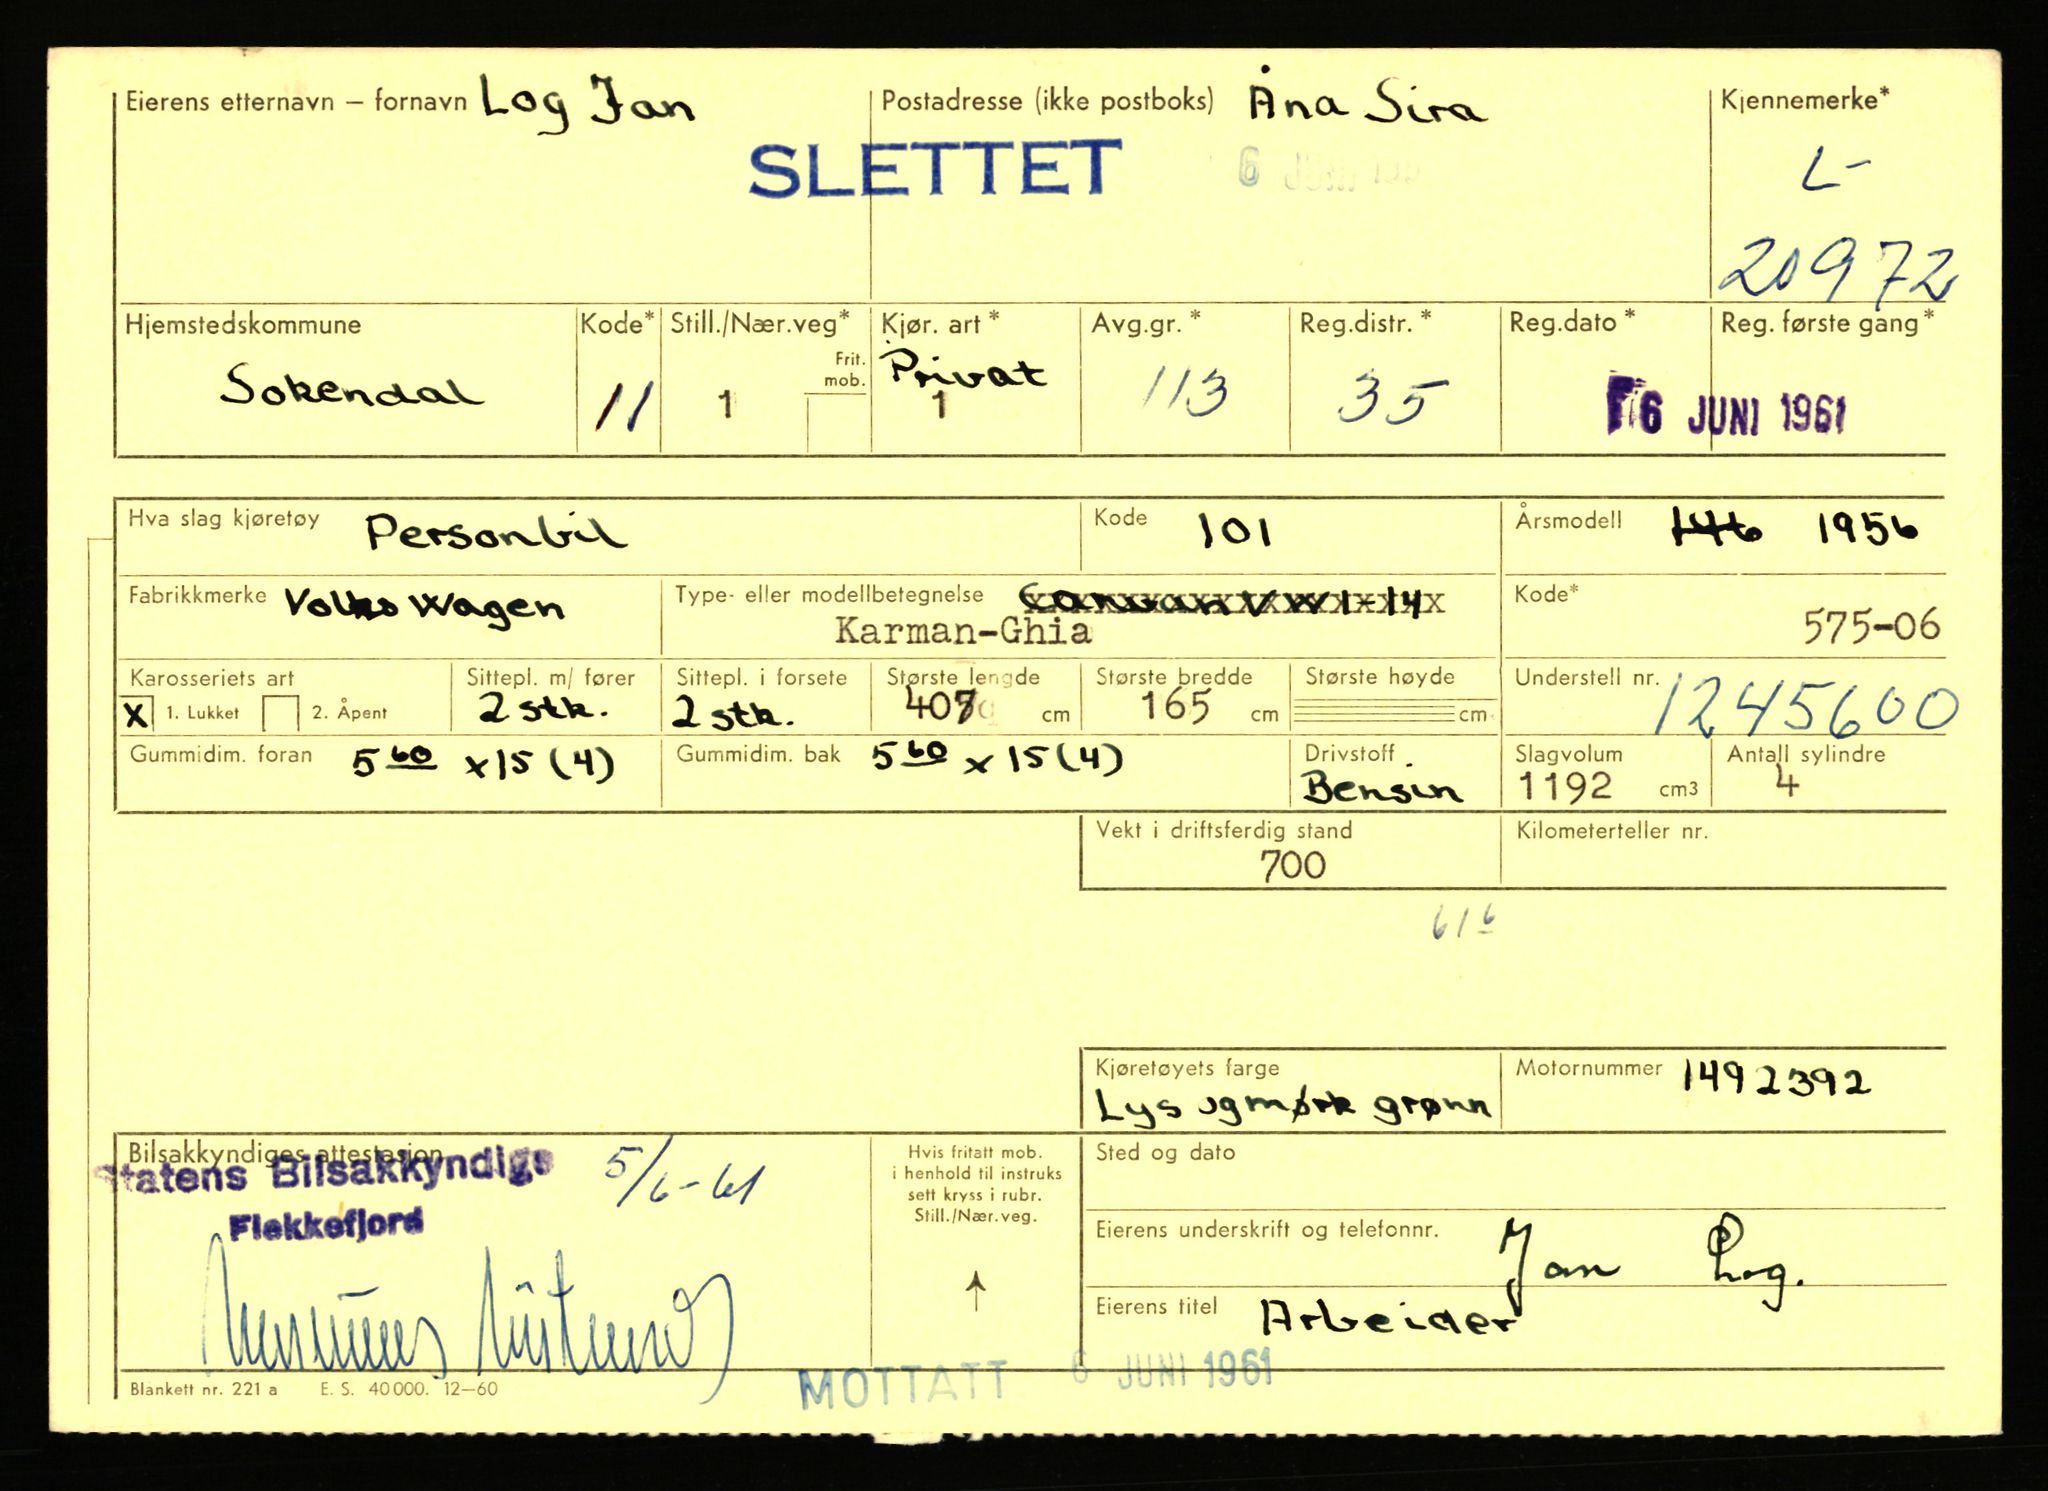 Eierens etternavn – fornavn Log Jan
Postadresse (ikke postboks) Åna Sira
Kjennemerke*
L-
20972
SLETTET
Hjemstedskommune
Sokendal
Kode*
11
Still./Nær.veg*
1
Frit.
mob.
Kjør. art*
Privat
1
Avg.gr.*
113
Reg.distr.*
35
Reg.dato*
Reg. første gang*
6 JUNI 1961
Hva slag kjøretøy Personbil
Kode 101
Årsmodell 1956
Fabrikkmerke Volkswagen
Type- eller modellbetegnelse
Karman-Ghia
Kode*
575-06
Karosseriets art
X 1. Lukket 2. Åpent
Sittepl. m/ fører
2 stk.
Sittepl. i forsete
2 stk.
Største lengde
407 cm
Største bredde
165 cm
Største høyde
cm
Understell nr. 1245600
Gummidim. foran 5 60 x 15 (4)
Gummidim. bak 5 60 x 15 (4)
Drivstoff
Bensin
Slagvolum
1192 cm3
Antall sylindre
4
Vekt i driftsferdig stand
700
Kilometerteller nr.
61 6
Kjøretøyets farge
Lys og mørk grønn
Motornummer 1492392
Bilsakkyndiges attestasjon
Statens Bilsakkyndige
Flekkefjord
5/6-61
Hvis fritatt mob.
i henhold til instruks
sett kryss i rubr.
Still./Nær.veg.
Sted og dato
Eierens underskrift og telefonnr. Jan Log.
Eierens titel Arbeider
Blankett nr. 221 a E. S. 40000. 12–60
MOTTATT 6 JUNI 1961